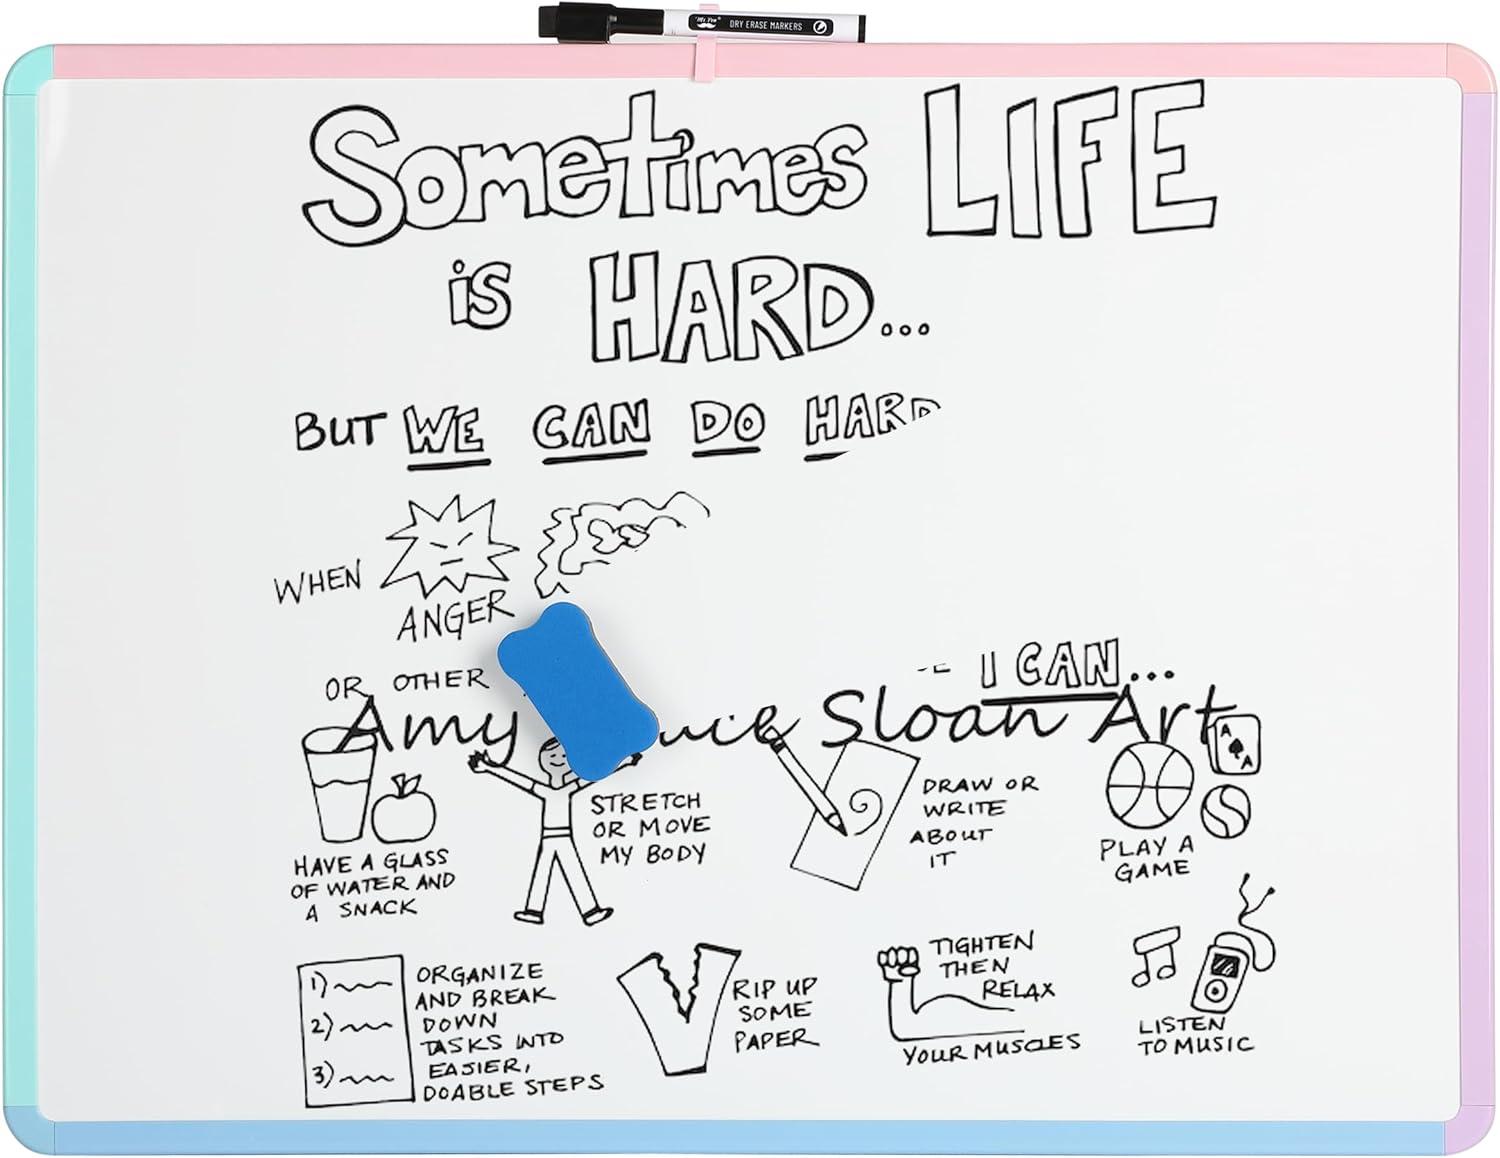 "Mr. Pen"
DRY ERASE MARKERS
Sometimes LIFE
is HARD...
BUT WE CAN DO HARD
WHEN
ANGER
OR OTHER
I CAN...
Amy Sloan Art
HAVE A GLASS
OF WATER AND
A SNACK
STRETCH
OR MOVE
MY BODY
DRAW OR
WRITE
ABOUT
IT
A
A
PLAY A
GAME
1)
2)
3)
ORGANIZE
AND BREAK
DOWN
TASKS INTO
EASIER,
DOABLE STEPS
RIP UP
SOME
PAPER
TIGHTEN
THEN
RELAX
YOUR MUSCLES
LISTEN
TO MUSIC